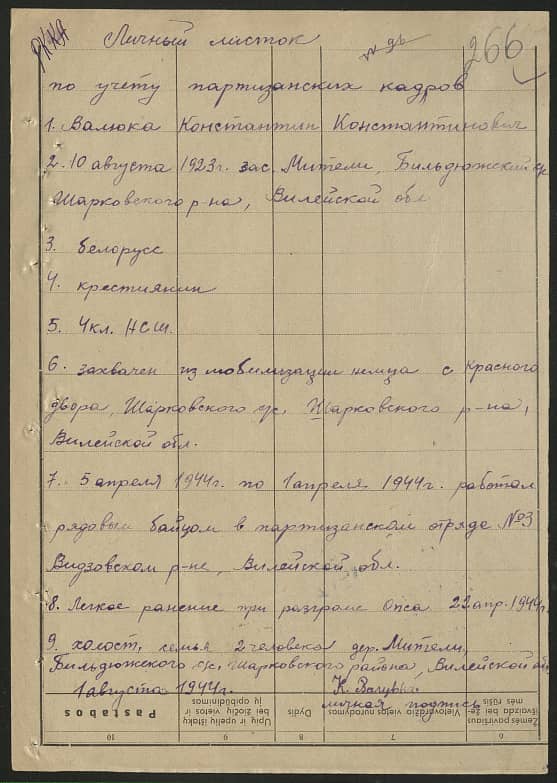 РККА
Личный листок
266
по учету партизанских кадров
1. Валюка Константин Константинович
2. 10 августа 1923г. зас. Мители, Бильдюжский с/с
Шарковского р-на, Вилейской обл
3. белорусс
4. крестиянин
5. 4кл. НСШ.
6. захвачен из мобилизации немца с Красного
двора, Шарковского с/с, Шарковского р-на,
Вилейской обл.
7. 5 апреля 1944г. по 1 апреля 1944г. работал
рядовым байцом в партизанском отряде №3
Видзовском р-не, Вилейской обл.
8. Легкое ранение при разгроме Опса 22 апр. 1944г.
9. холост, семья 2 человека дер. Мители,
Бильдюжского с/с, Шарковского района, Вилейской обл
1 августа 1944г.
личная подпись
Pastabos
Upių ir upelių ištakų bei žiočių vietos ir jų apibūdinimos
Dydis
Vietovardžio vietos nurodymos
Žemės paviršiaus išvaizda bei žemės rūšis
10
9
8
7
6